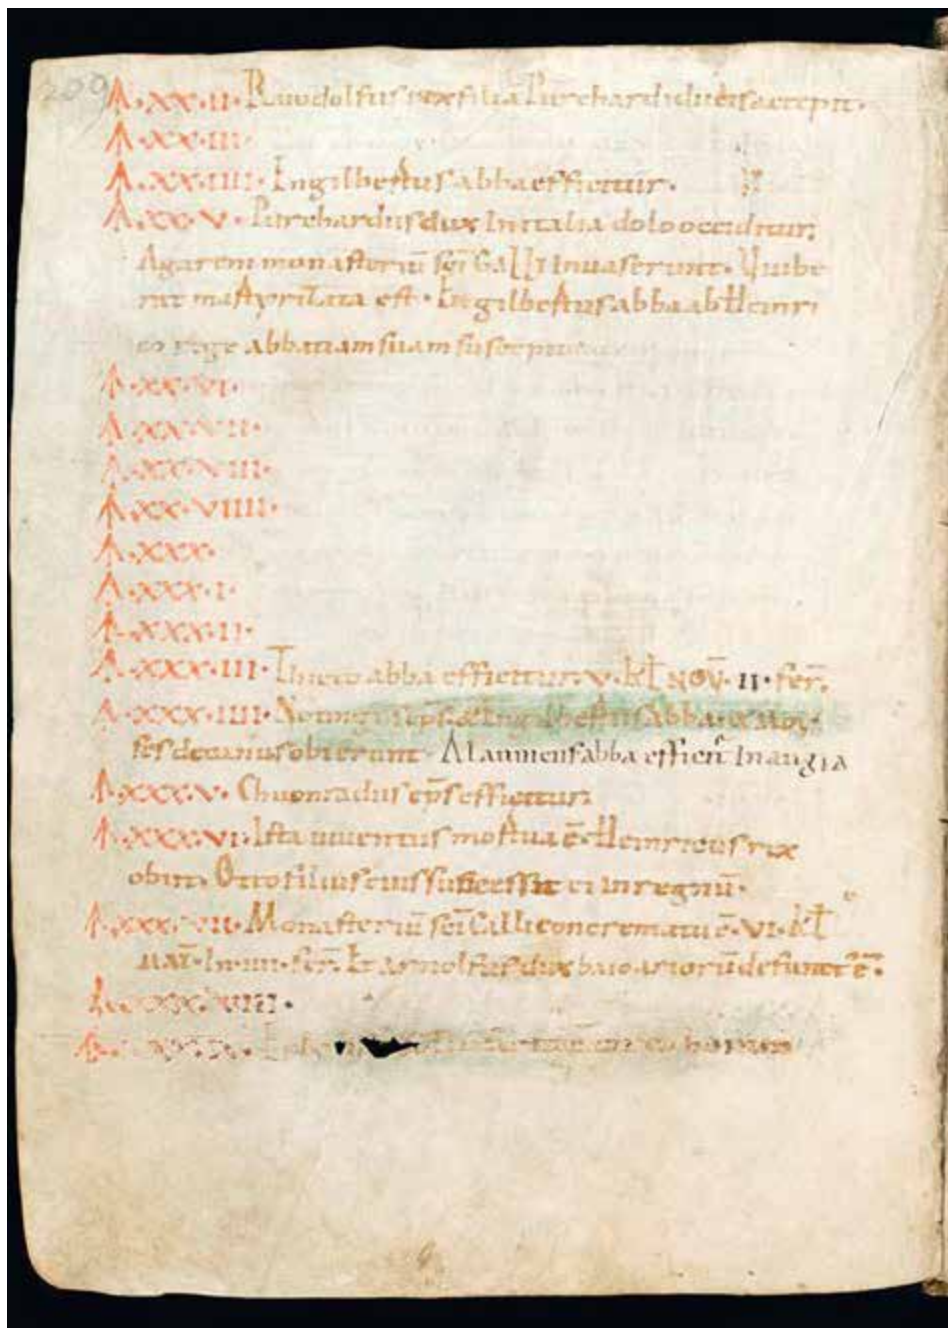 209
A·XX·II· Ruodolfus rex filia Purchardi ducis accepit.
A·XX·III·
A·XX·IIII· Ingilbertus abba efficitur.
A·XX·V· Purchardus dux In italia dolo occiditur;
Agareni monasteriū sc̄i Galli Inuaserunt· Uuibe
rat martyrizata est· Ingilbertus abba ab Heinri
co rege abbatiam suam suscepit
A·XX·VI·
A·XX·VII·
A·XX·VIII·
A·XX·VIIII·
A·XXX·
A·XXX·I·
A·XXX·II·
A·XXX·III· Thieto abba efficitur· V· kł NOV̄· II· fer̄.
A·XXX·IIII· Notingus ep̄s & Ingilbertus abba &
ses decanus obierunt· Alauuicus abba effici In augia
A·XXX·V· Chuonradus ep̄s efficitur;
A·XXX·VI· Ista iuuentus mortua ē· Heinricus rex
obiit· Otto filius eius successit ei in regnū·
A·XXX·VII· Monasteriū sc̄i Galli concrematū ē· VI· kł
MAI· In· IIII· fer̄· Et arnolfus dux baioariorū defunct' ē·
A·XXX·VIII·